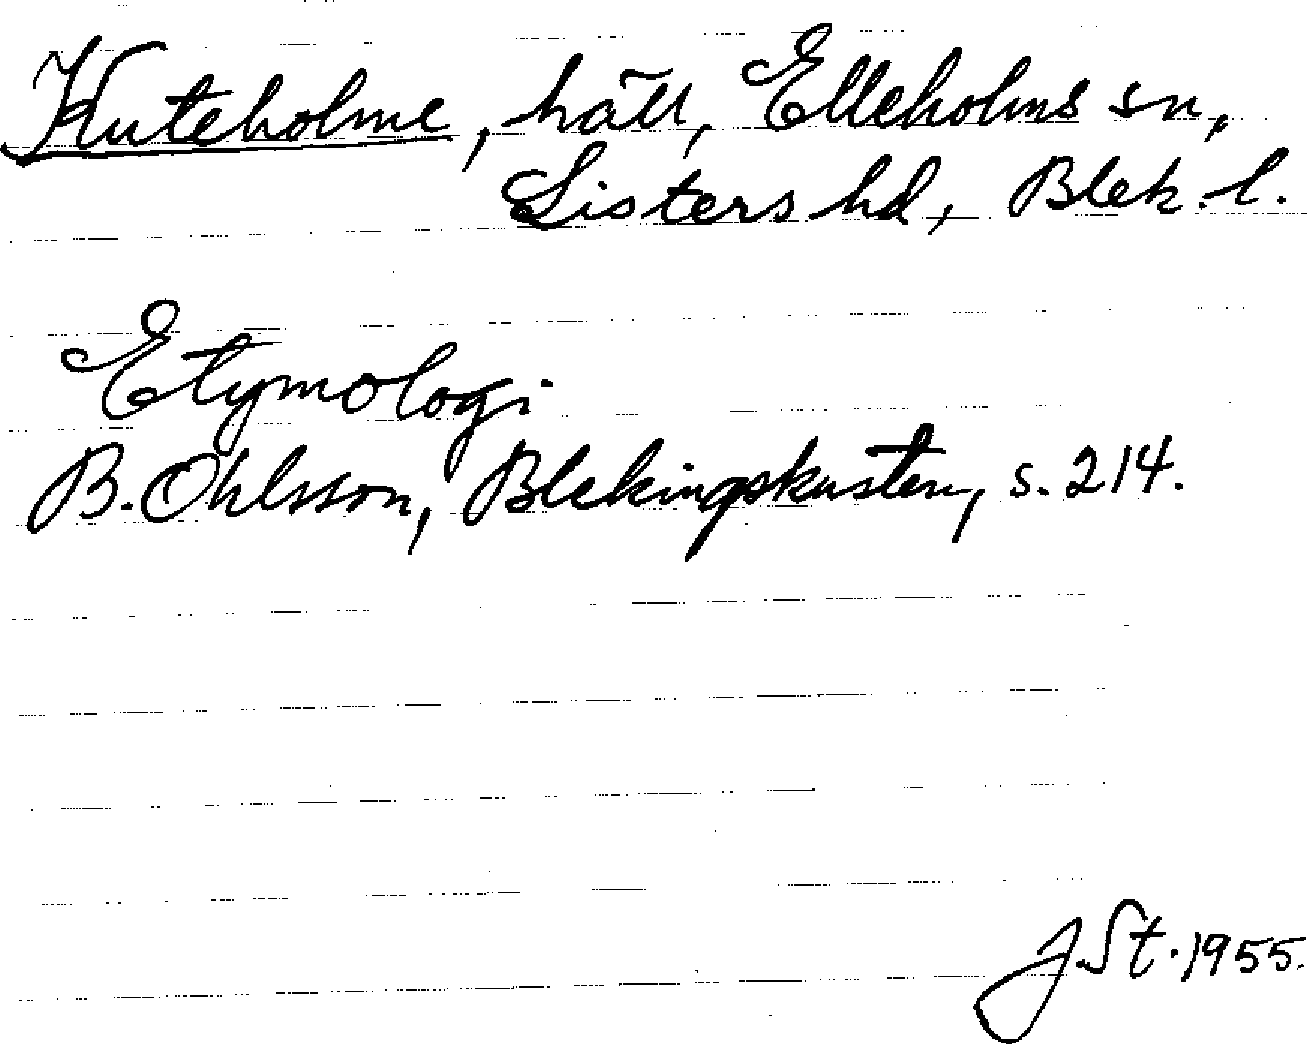 Kuteholme, häll, Elleholms sn,
Listers hd, Blek. l.
Etymologi
B. Ohlsson, Blekingskusten, s. 214.
J. St. 1955.